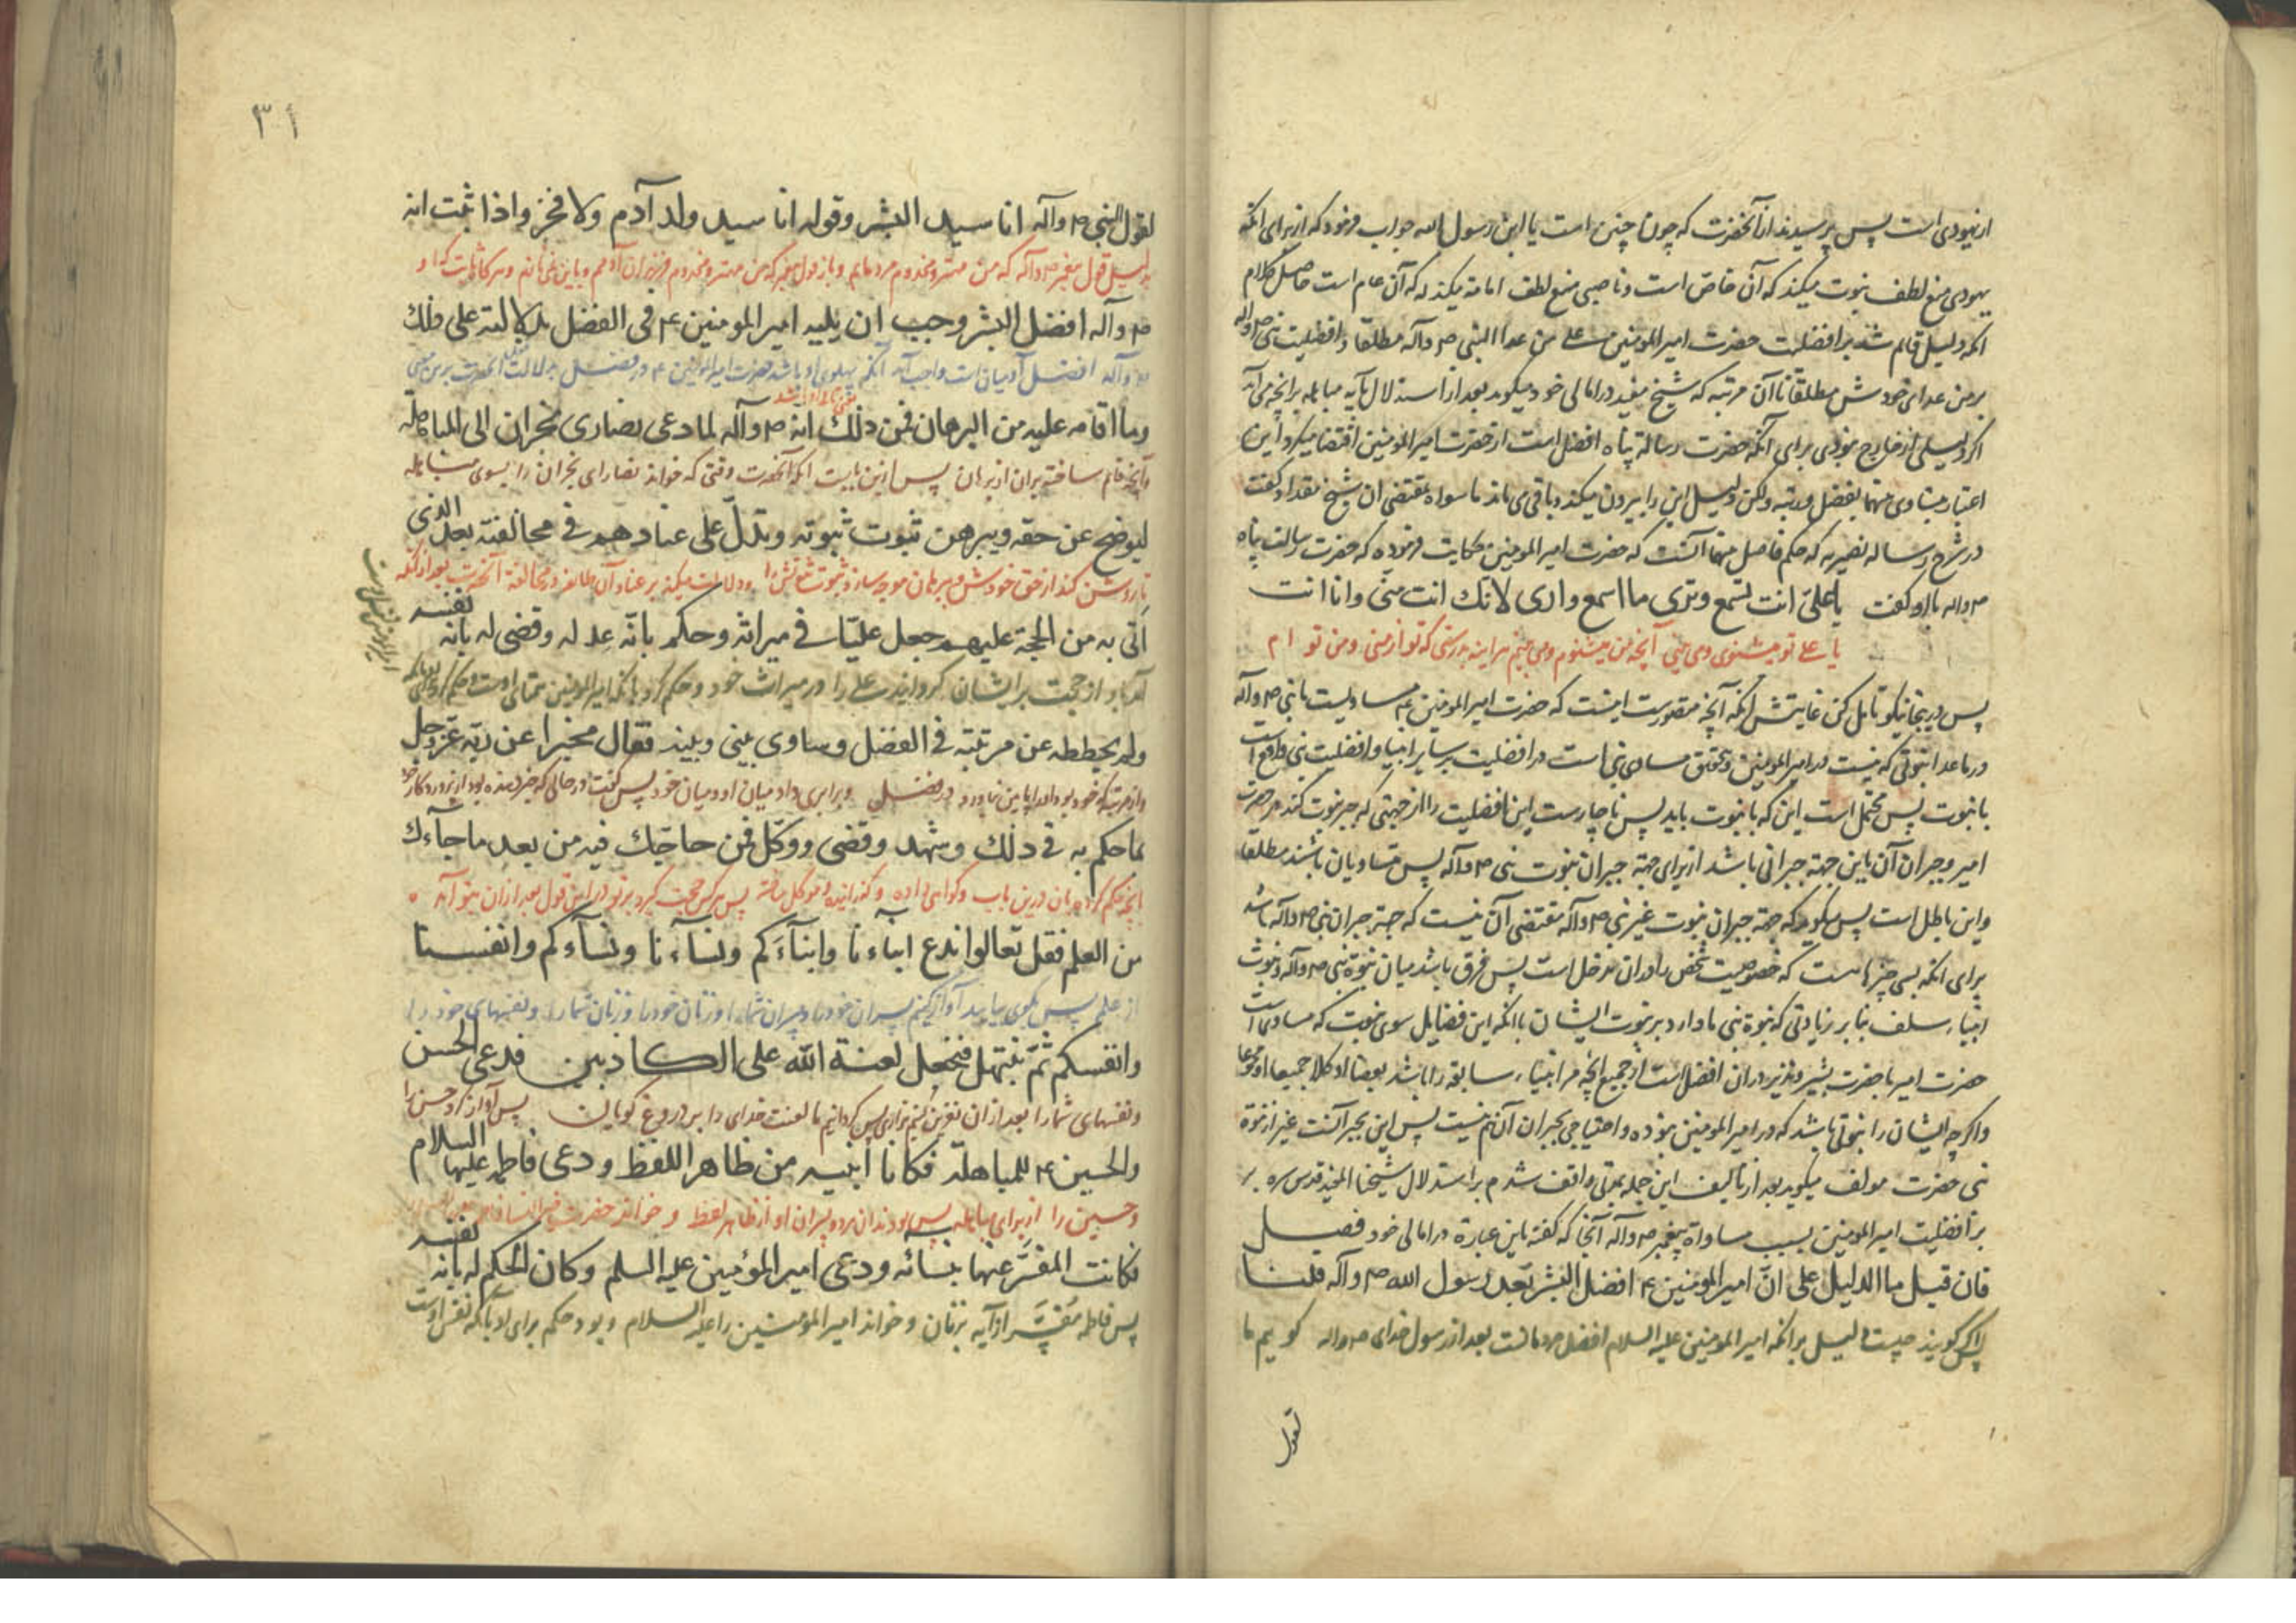 ازیهودی است پس پرسیدند از آنحضرت که چون چنین است یا ابن رسول الله جواب فرمود که از برای آنکه
یهودی منع لطف نبوت میکند که آن خاص است و ناصبی منع لطف امامة میکند که آن عام است حاصل کلام
آنکه دلیل قائم شد بر افضلیت حضرت امیرالمومنین علی من عدا النبی ص وآله مطلقا و افضلیت نبی ص وآله
بر من عدای خودش مطلقا تا آن مرتبه که شیخ مفید در امالی خود میگوید بعد از استدلال بآیه مباهله بر آنچه می آید
اگر دلیلی از خارج نبودی برای آنکه حضرت رسالة پناه افضل است از حضرت امیرالمومنین اقتضا میکرد این
اعتبار تساوی میانهما بفضل و رتبه ولکن دلیل این را بیرون میکند و باقی می ماند ما سواه بمقتضی آن شیخ مقداد گفت
در شرح رساله نصیریه که حکم فاصل میانهما آنست که حضرت امیرالمومنین حکایت فرموده که حضرت رسالت پناه
ص وآله باو گفت یا علیّ انت تسمع وتری ما اسمع واری لانک انت منّی وانا انت
یا علی تو میشنوی و می بینی آنچه من میشنوم و می بینم هر آینه بدرستی که تو از منی و من تو ام
پس درینجا نیکو تامل کن غایتش آنکه آنچه متصورست اینست که حضرت امیرالمومنین ع مساویست با نبی ص وآله
در ماعدا نبوتی که نیست در امیرالمومنین و تحقق مساوی نبی است در افضلیت بر سایر انبیا و افضلیت نبی واقع است
با نبوت پس محتمل است این که با نبوت باید پس ناچارست این افضلیت را از جهتی که جبر نبوت کند در حضرت
امیر و جبران آن باین جهة جبرانی باشد از برای جهة جبران نبوت نبی ص وآله پس متساویان باشند مطلقا
و این باطل است پس میگویم که جهة جبران نبوت غیر نبی ص وآله مقتضی آن نیست که جهة جبران نبی ص وآله باشد
برای آنکه بسی چیزهاست که خصوصیت شخص را در آن مدخل است پس فرق باشد میان نبوة نبی ص وآله و نبوت
انبیاء سلف بنا بر زیادتی که نبوة نبی ما دارد بر نبوت ایشان با آنکه این فضایل سوی نبوت که مساوی است
حضرت امیر با حضرت بشیر و نذیر در آن افضل است از جمیع آنچه مر انبیاء سابقه را باشد بعضا او کلا جمیعا او مجموعا
و اگر چه ایشان را نبوتی باشد که در امیرالمومنین نبوده و احتیاجی بجبران آن هم نیست پس این بجبر آنست غیر از نبوة
نبی حضرت مولف میگوید بعد از تالیف این جمله بمدتی واقف شدم بر استدلال شیخنا المفید قدس سره
بر افضلیت امیرالمومنین بسبب مساواة پیغمبر ص وآله آنجا که گفته باین عبارة در امالی خود فصیل
فان قیل ما الدلیل علی انّ امیرالمومنین ع افضل البشر بعد رسول الله ص وآله قلنا
پس اگر گویند چیست دلیل بر آنکه امیرالمومنین علیه السلام افضل مردمانست بعد از رسول خدای ص وآله گوییم ما
لقول
٣١
لقول النبی ص وآله انا سید البشر وقوله انا سید ولد آدم ولا فخر واذا ثبت انه
بدلیل قول پیغمبر ص وآله که من مهتر و مخدوم مردمانم و باز قول پیغمبر که من مهتر و مخدوم فرزندان آدمم و باین نمی نازم و هرگاه ثابت که او
ص وآله افضل البشر وجب ان یلیه امیرالمومنین ع فی الفضل بدلالته علی ذلک
ص وآله افضل آدمیان است واجب آمد آنکه پهلوی او باشد حضرت امیرالمومنین ع در فضل بدلالت آنحضرت برین معنی
وما اقامه علیه من البرهان فمن ذلک انه ص وآله لما دعی نصاری نجران الی المباهلة
وآنچه قائم ساخته بران از برهان پس ازین بابت آنکه آنحضرت وقتی که خواند نصارای نجران را بسوی مباهله
لیوضح عن حقه ویبرهن ثبوت نبوته وتدلّ علی عنادهم فی مخالفته بعد الذی
تا روشن کند از حق خودش و برهان موجه سازد ثبوت نبوتش را و دلالت میکند بر عناد آن طائفه در مخالفة آنحضرت بعد از آنکه
اتی به من الحجة علیهم جعل علیّا فی میراثه وحکم بانّه عدله وقضی له بانه نفسه
آمد باو از حجت بر ایشان گردانید علی را در میراث خود و حکم کرد بآنکه امیرالمومنین همتای اوست و حکم کرد برای او بآنکه
ولم یحططه عن مرتبته فی الفضل وساوی بینی وبینه فقال مخبرا عن ربّه عزّ وجل
و از مرتبه که خود بود او را پایین نیاورد در فضل و برابری داد میان او و میان خود پس گفت در حالی که خبر دهنده بود از پروردگار خود
بما حکم به فی ذلک وشهد وقضی ووکّل فمن حاجّک فیه من بعد ما جآءک
آنچه حکم کرده بان درین باب و گواهی داده و گذرانیده و موکل ساخته پس هرکس حجت گیرد بر تو در این قول بعد از آن بتو آمد
من العلم فقل تعالوا ندع ابنآءنا وابنآءکم ونسآءنا ونسآءکم وانفسنا
از علم پس بگوی بیایید آواز کنیم پسران خود را و پسران شما را و زنان خود را و زنان شما را و نفسهای خود را
وانفسکم ثمّ نبتهل فنجعل لعنة الله علی الکاذبین فدعی الحسن
و نفسهای شما را بعد از آن نفرین کنیم بزاری پس گردانیم ما لعنت خدای را بر دروغ گویان پس آواز کرد حسن را
والحسین ع للمباهلة فکانا ابنیه من ظاهر اللفظ ودعی فاطمه علیها السلام
و حسین را از برای مباهله پس بودند آن هر دو پسران او از ظاهر لفظ و خواند حضرت
فکانت المفسّر عنها بنسائه ودعی امیرالمؤمنین علیه السلم وکان الحکم له بانه نفسه
پس فاطمه مفسّر او آیه بزنان و خواند امیرالمومنین را علیه السلام و بود حکم برای او بآنکه نفس اوست